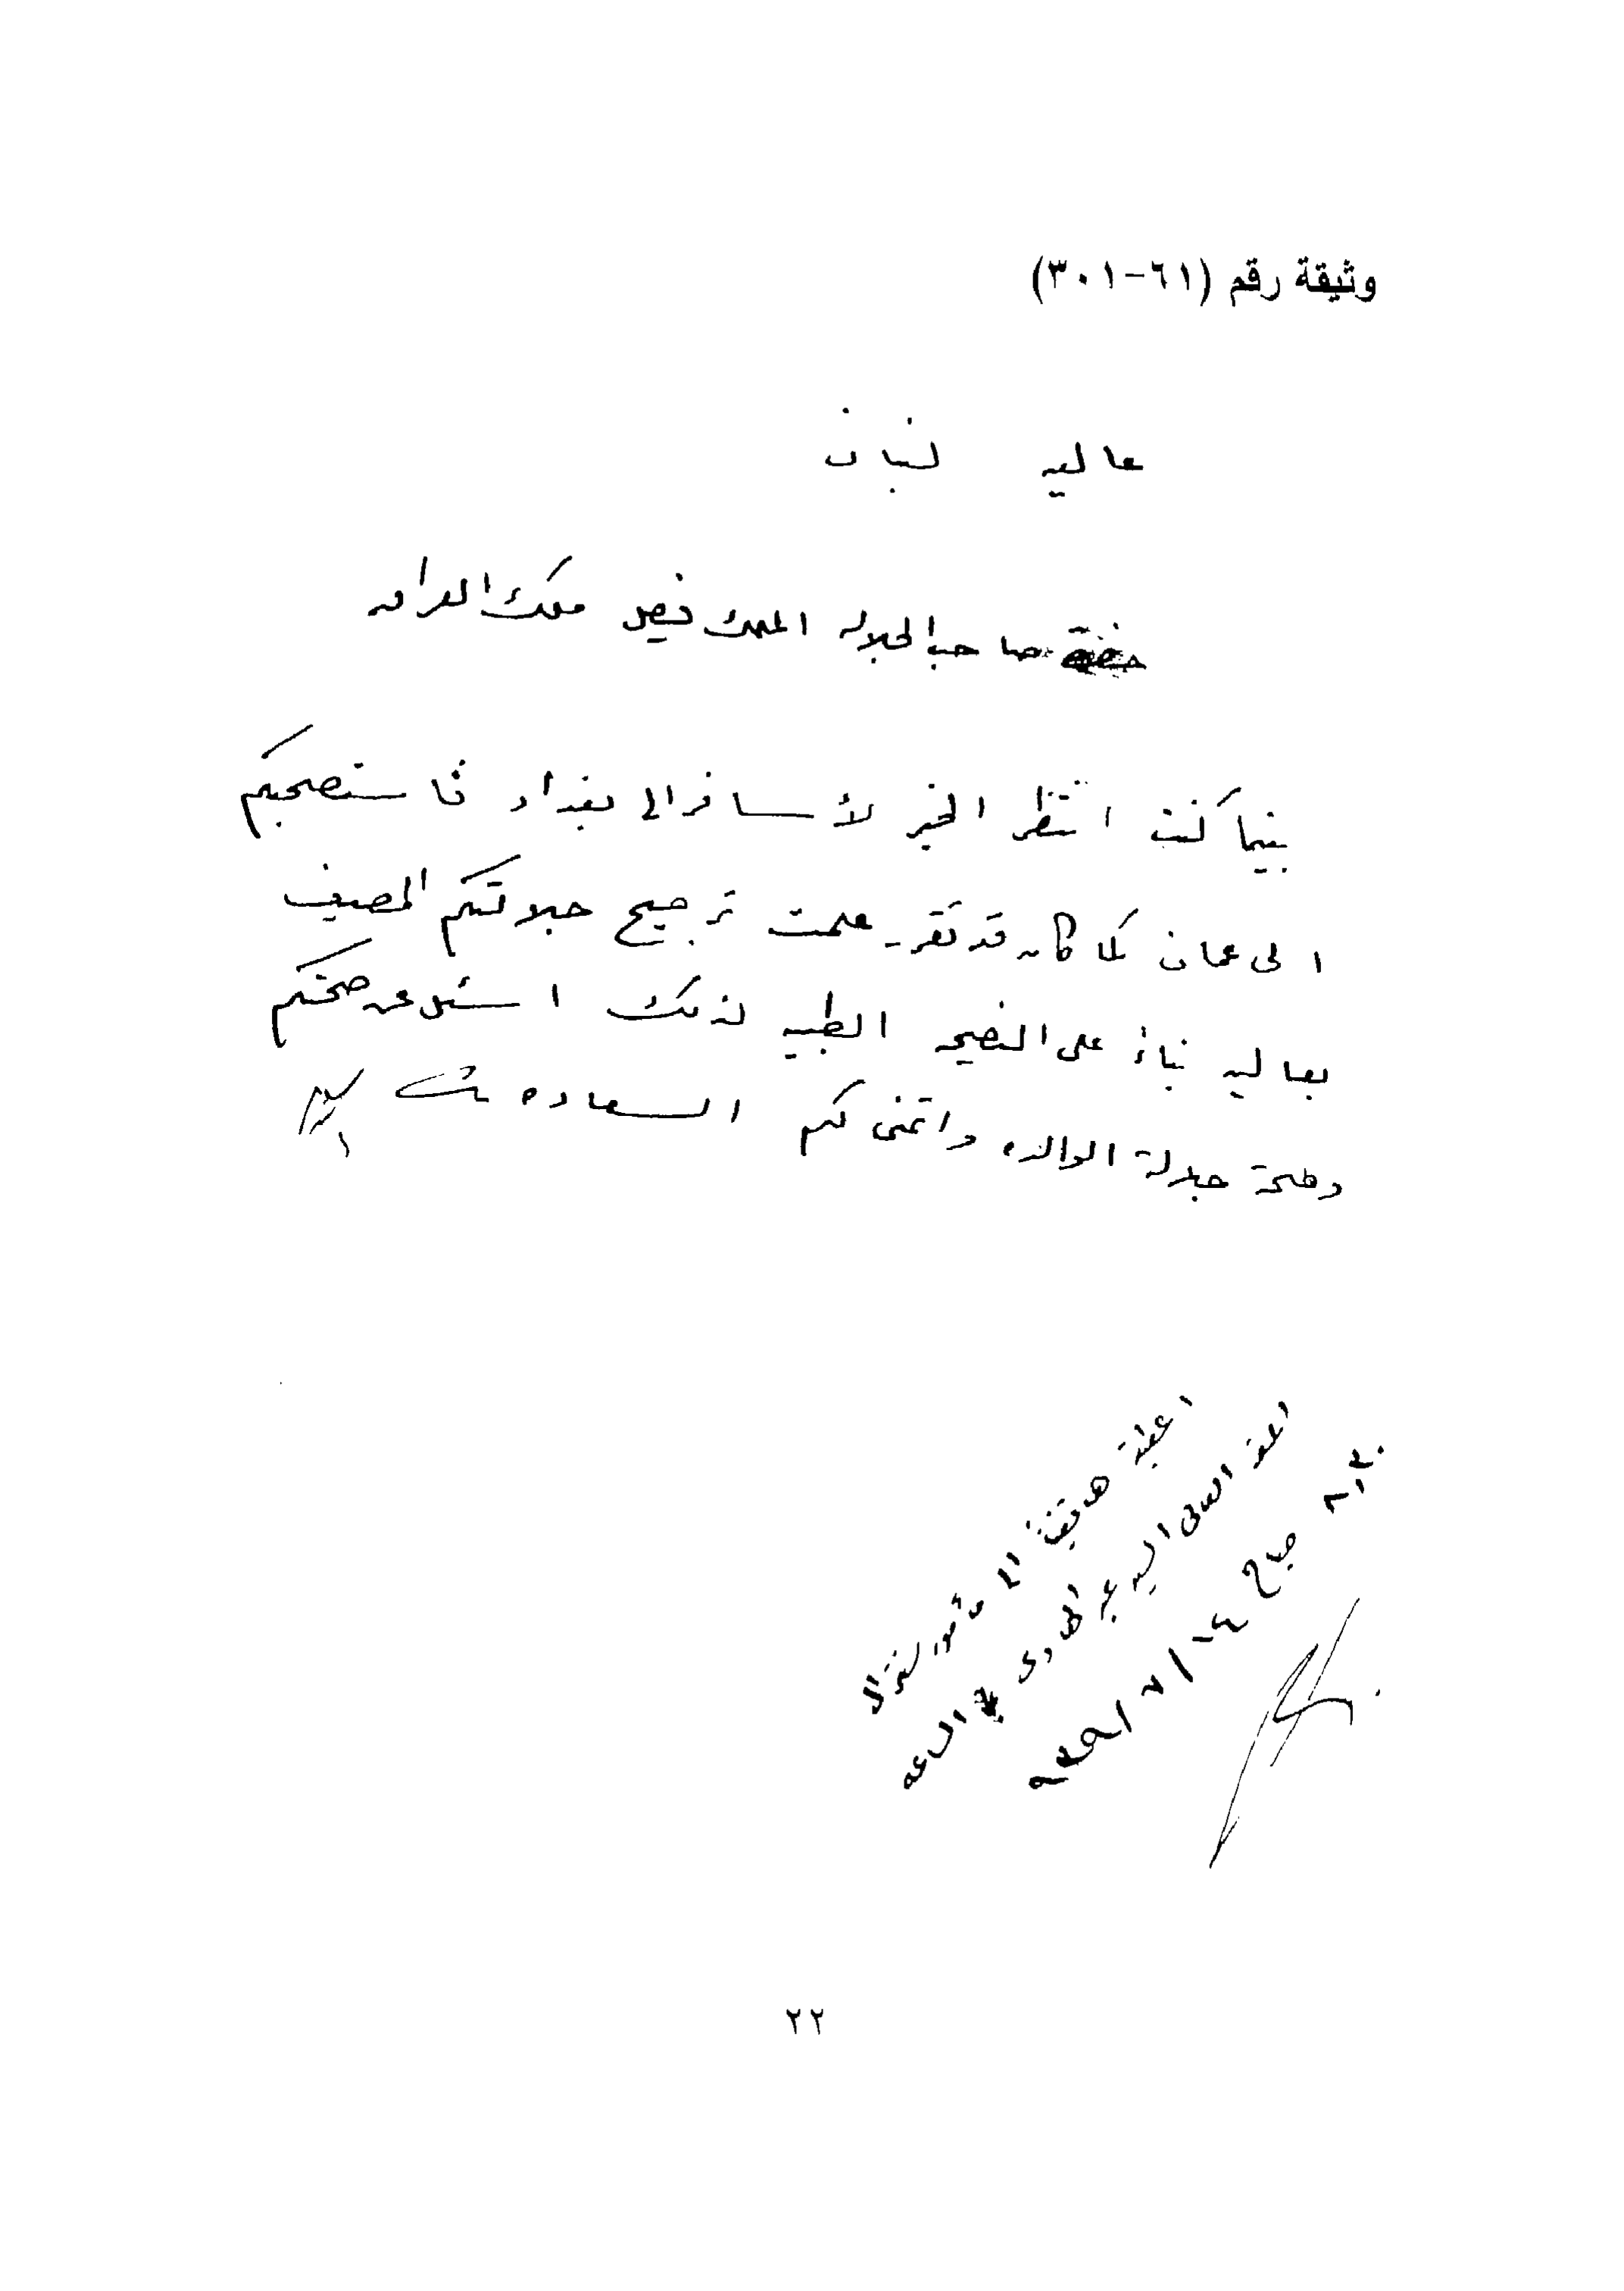 وثيقة رقم (٦١-٣٠١)
عاليه لبنان
حضرة صاحب الجلاله الملك فيصل ملك العراق
بينما كنت انتظر الخبر لأسافر الى بغداد فاستصحبكم
الى عمان كما كان قد تقرر علمت ترجيح جلالتكم المصيف
بعاليه بناءً على النصيحه الطبيه لذلك اسئل عن صحتكم
وصحة جلالة الوالده واتمنى لكم السعاده
اعطية هاتفياً الى مأمور سنترال
السيد عبد الهادي في الساعه
٨،٣٠ صباح ١٤/٧/
٢٢